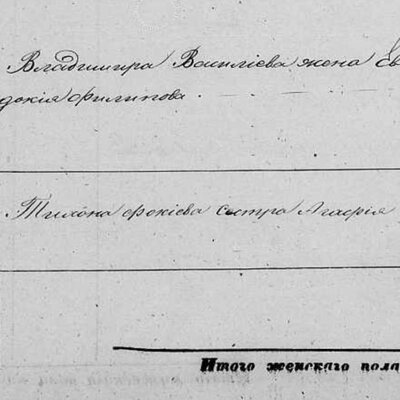 Владимира Василиева жена Ев
докія Филипова.
Тихона Фокіева сестра Агафія
Итого женскаго пола